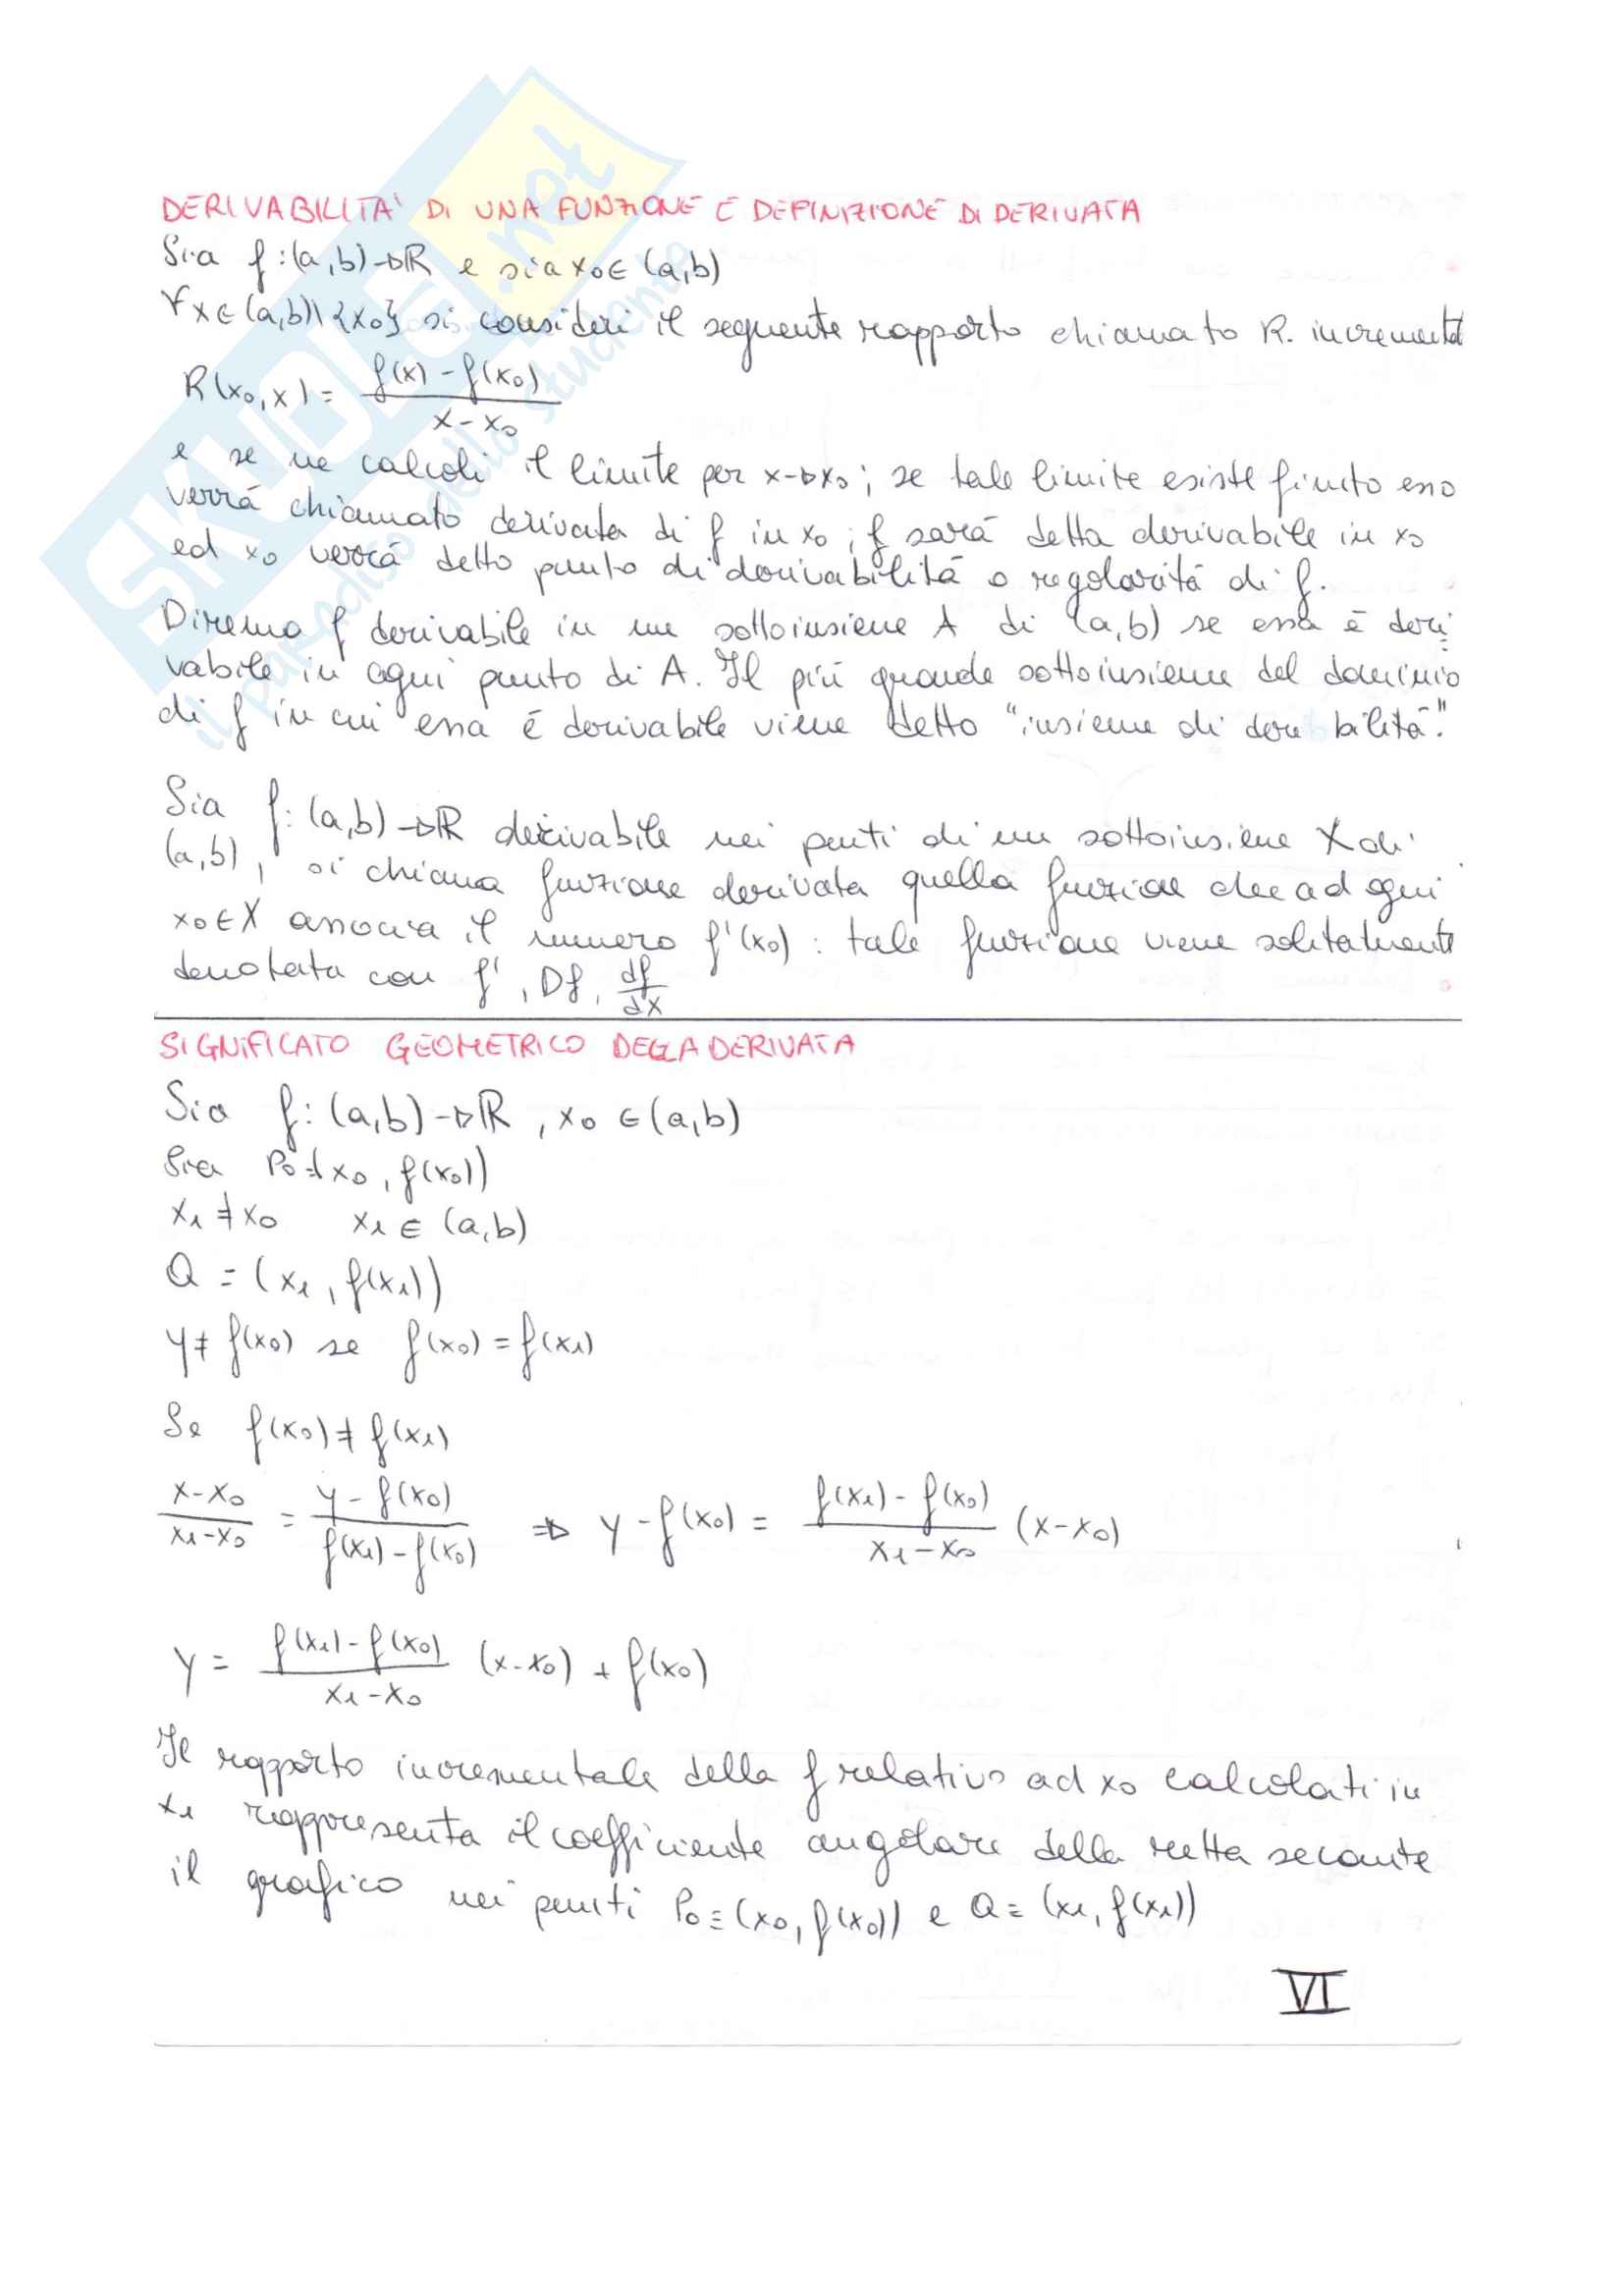 DERIVABILITA' DI UNA FUNZIONE E DEFINIZIONE DI DERIVATA
Sia f:(a,b)→ℝ e sia x₀∈(a,b)
∀x∈(a,b)\{x₀} si consideri il seguente rapporto chiamato R. incremental
R(x₀,x) = (f(x) - f(x₀))/(x - x₀)
e se ne calcoli il limite per x→x₀; se tale limite esiste finito esso
verrá chiamato derivata di f in x₀; f sará detta derivabile in x₀
ed x₀ verrá detto punto di derivabilitá o regolaritá di f.
Diremo f derivabile in un sottoinsieme A di (a,b) se essa é deri
vabile in ogni punto di A. Il piú grande sottoinsieme del dominio
di f in cui essa é derivabile viene detto "insieme di deri bilitá".
Sia f:(a,b)→ℝ derivabile nei punti di un sottoinsieme X di
(a,b), si chiama funzione derivata quella funzione che ad ogni
x₀∈X associa il numero f'(x₀): tale funzione viene solitamente
denotata con f', Df, df/dx
SIGNIFICATO GEOMETRICO DELLA DERIVATA
Sia f:(a,b)→ℝ, x₀∈(a,b)
Sia P₀≡(x₀, f(x₀))
x₁≠x₀ x₁∈(a,b)
Q = (x₁, f(x₁))
y≠f(x₀) se f(x₀) = f(x₁)
Se f(x₀)≠f(x₁)
(x-x₀)/(x₁-x₀) = (y-f(x₀))/(f(x₁)-f(x₀)) ⇒ y-f(x₀) = (f(x₁)-f(x₀))/(x₁-x₀) (x-x₀)
y = (f(x₁)-f(x₀))/(x₁-x₀) (x-x₀) + f(x₀)
Il rapporto incrementale della f relativo ad x₀ calcolati in
x₁ rappresenta il coefficiente angolare della retta secante
il grafico nei punti P₀≡(x₀, f(x₀)) e Q≡(x₁, f(x₁))
VI
SKUOLA.net
il paradiso dello studente